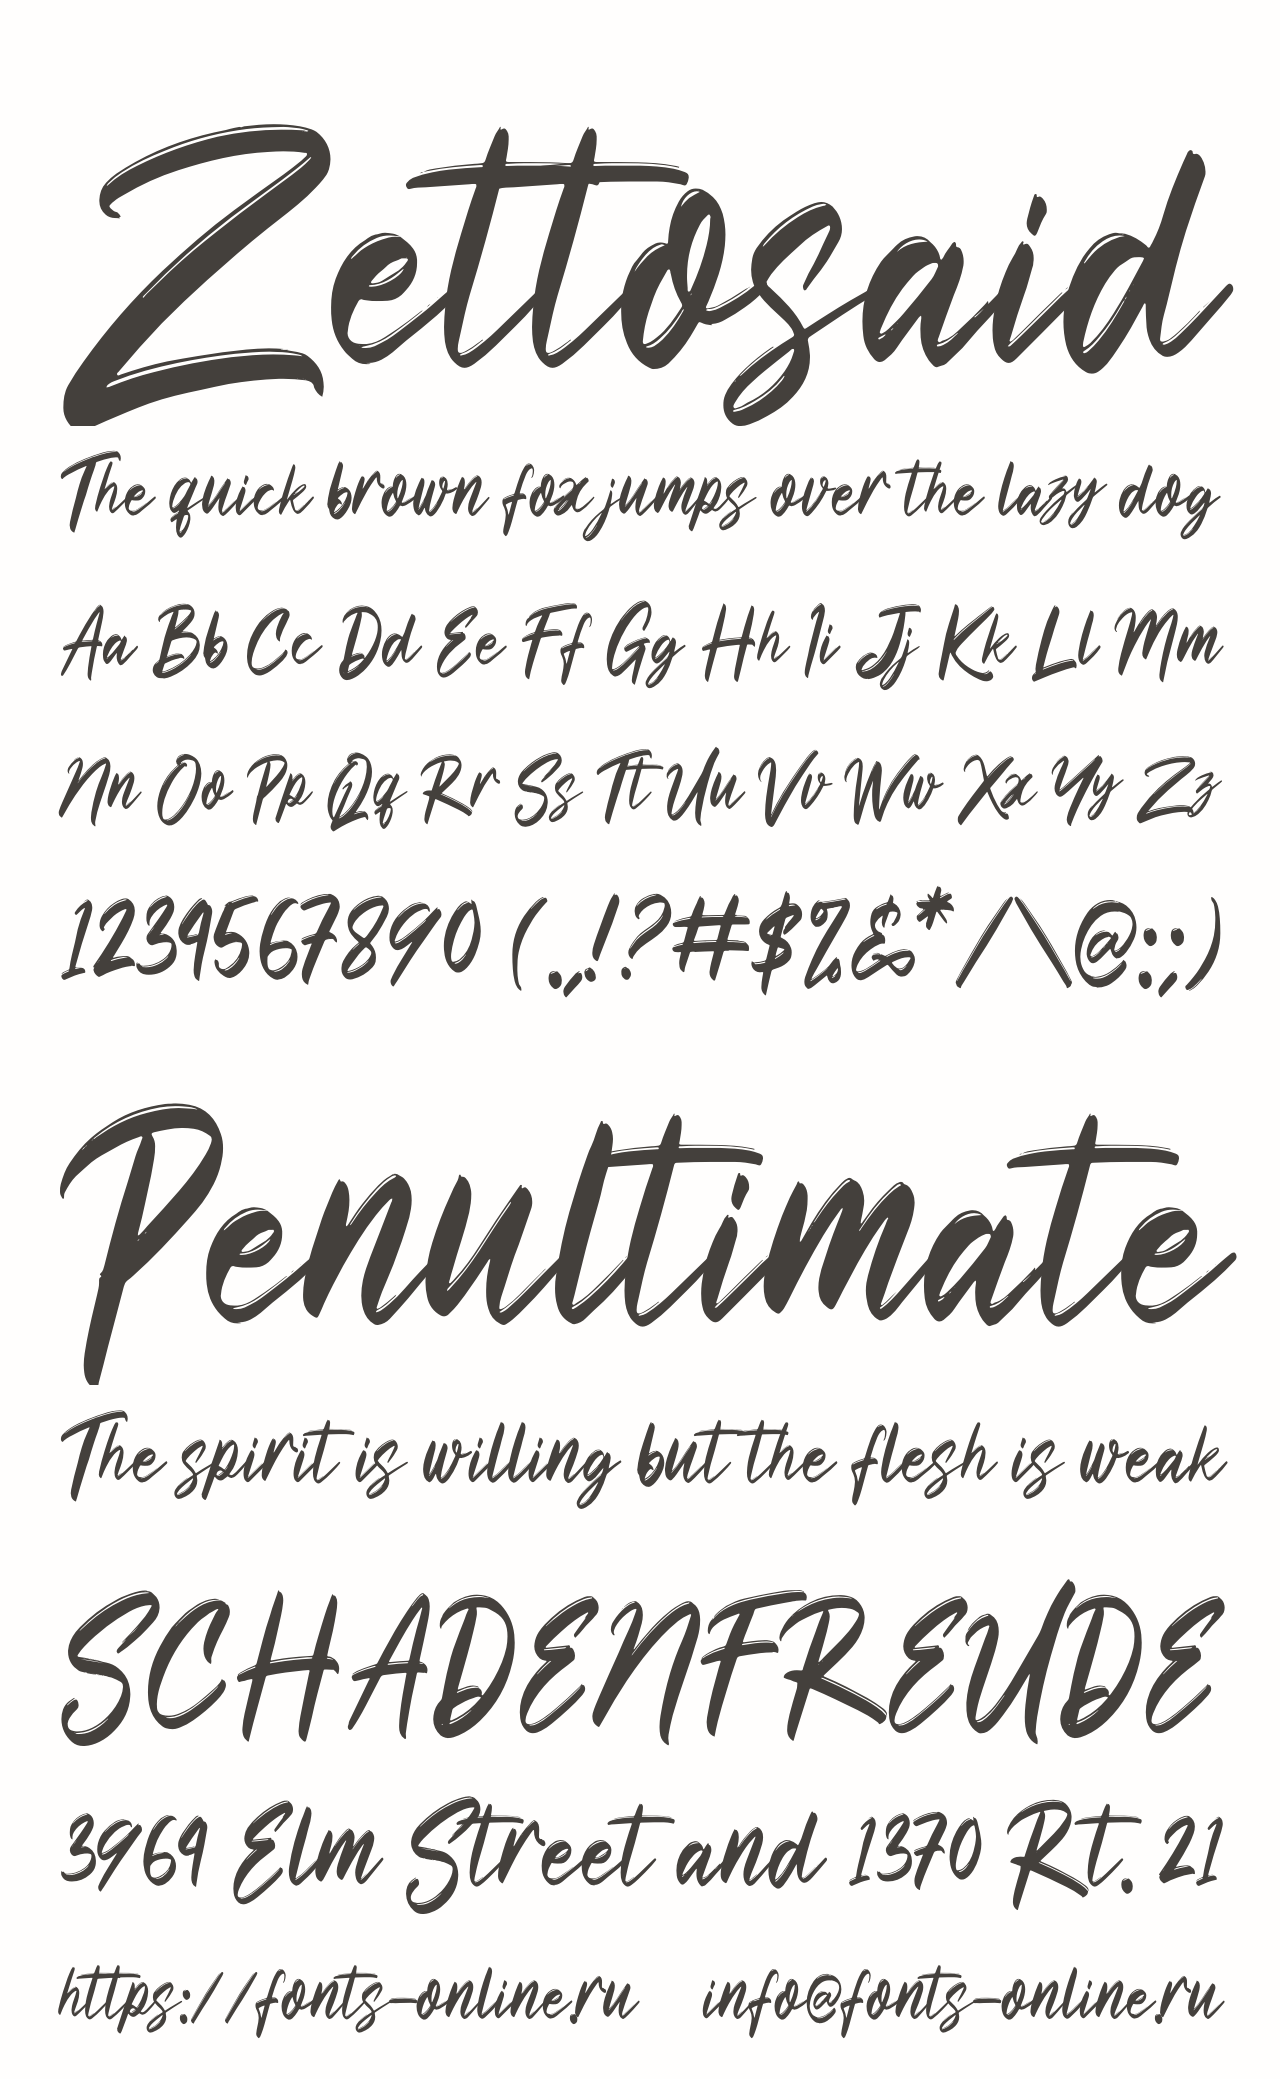 Zettosaid
The quick brown fox jumps over the lazy dog
Aa Bb Cc Dd Ee Ff Gg Hh Ii Jj Kk Ll Mm
Nn Oo Pp Qq Rr Ss Tt Uu Vv Ww Xx Yy Zz
1234567890 (.,.!?#$%&*/\@:;)
Penultimate
The spirit is willing but the flesh is weak
SCHADENFREUDE
3964 Elm Street and 1370 Rt. 21
https://fonts-online.ru info@fonts-online.ru